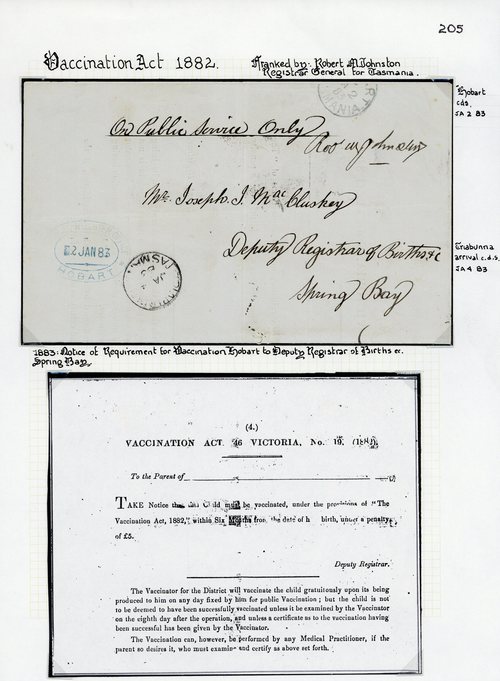 205
Vaccination Act 1882.
Franked by: Robert M Johnston
Registrar General for Tasmania.
Hobart
cds.
JA 2 83
On Public Service Only
Rob M Johnston
Mr. Joseph. J. MacCluskey
Deputy Registrar of Births &c
Spring Bay
22 JAN 83
HOBART
TASMANIA
JA 4
83
Triabunna
arrival c.d.s.
JA 4 83
1883: Notice of Requirement for Vaccination Hobart to Deputy Registrar of Births &c.
Spring Bay.
(4.)
VACCINATION ACT 46 VICTORIA, No. 19. (1882).
To the Parent of
TAKE Notice that Child must be vaccinated, under the provisions of "The
Vaccination Act, 1882," within Six Months from the date of h birth, under a penalty
of £5.
Deputy Registrar.
The Vaccinator for the District will vaccinate the child gratuitously upon its being
produced to him on any day fixed by him for public Vaccination; but the child is not
to be deemed to have been successfully vaccinated unless it be examined by the Vaccinator
on the eighth day after the operation, and unless a certificate as to the vaccination having
been successful has been given by the Vaccinator.
The Vaccination can, however, be performed by any Medical Practitioner, if the
parent so desires it, who must examine and certify as above set forth.